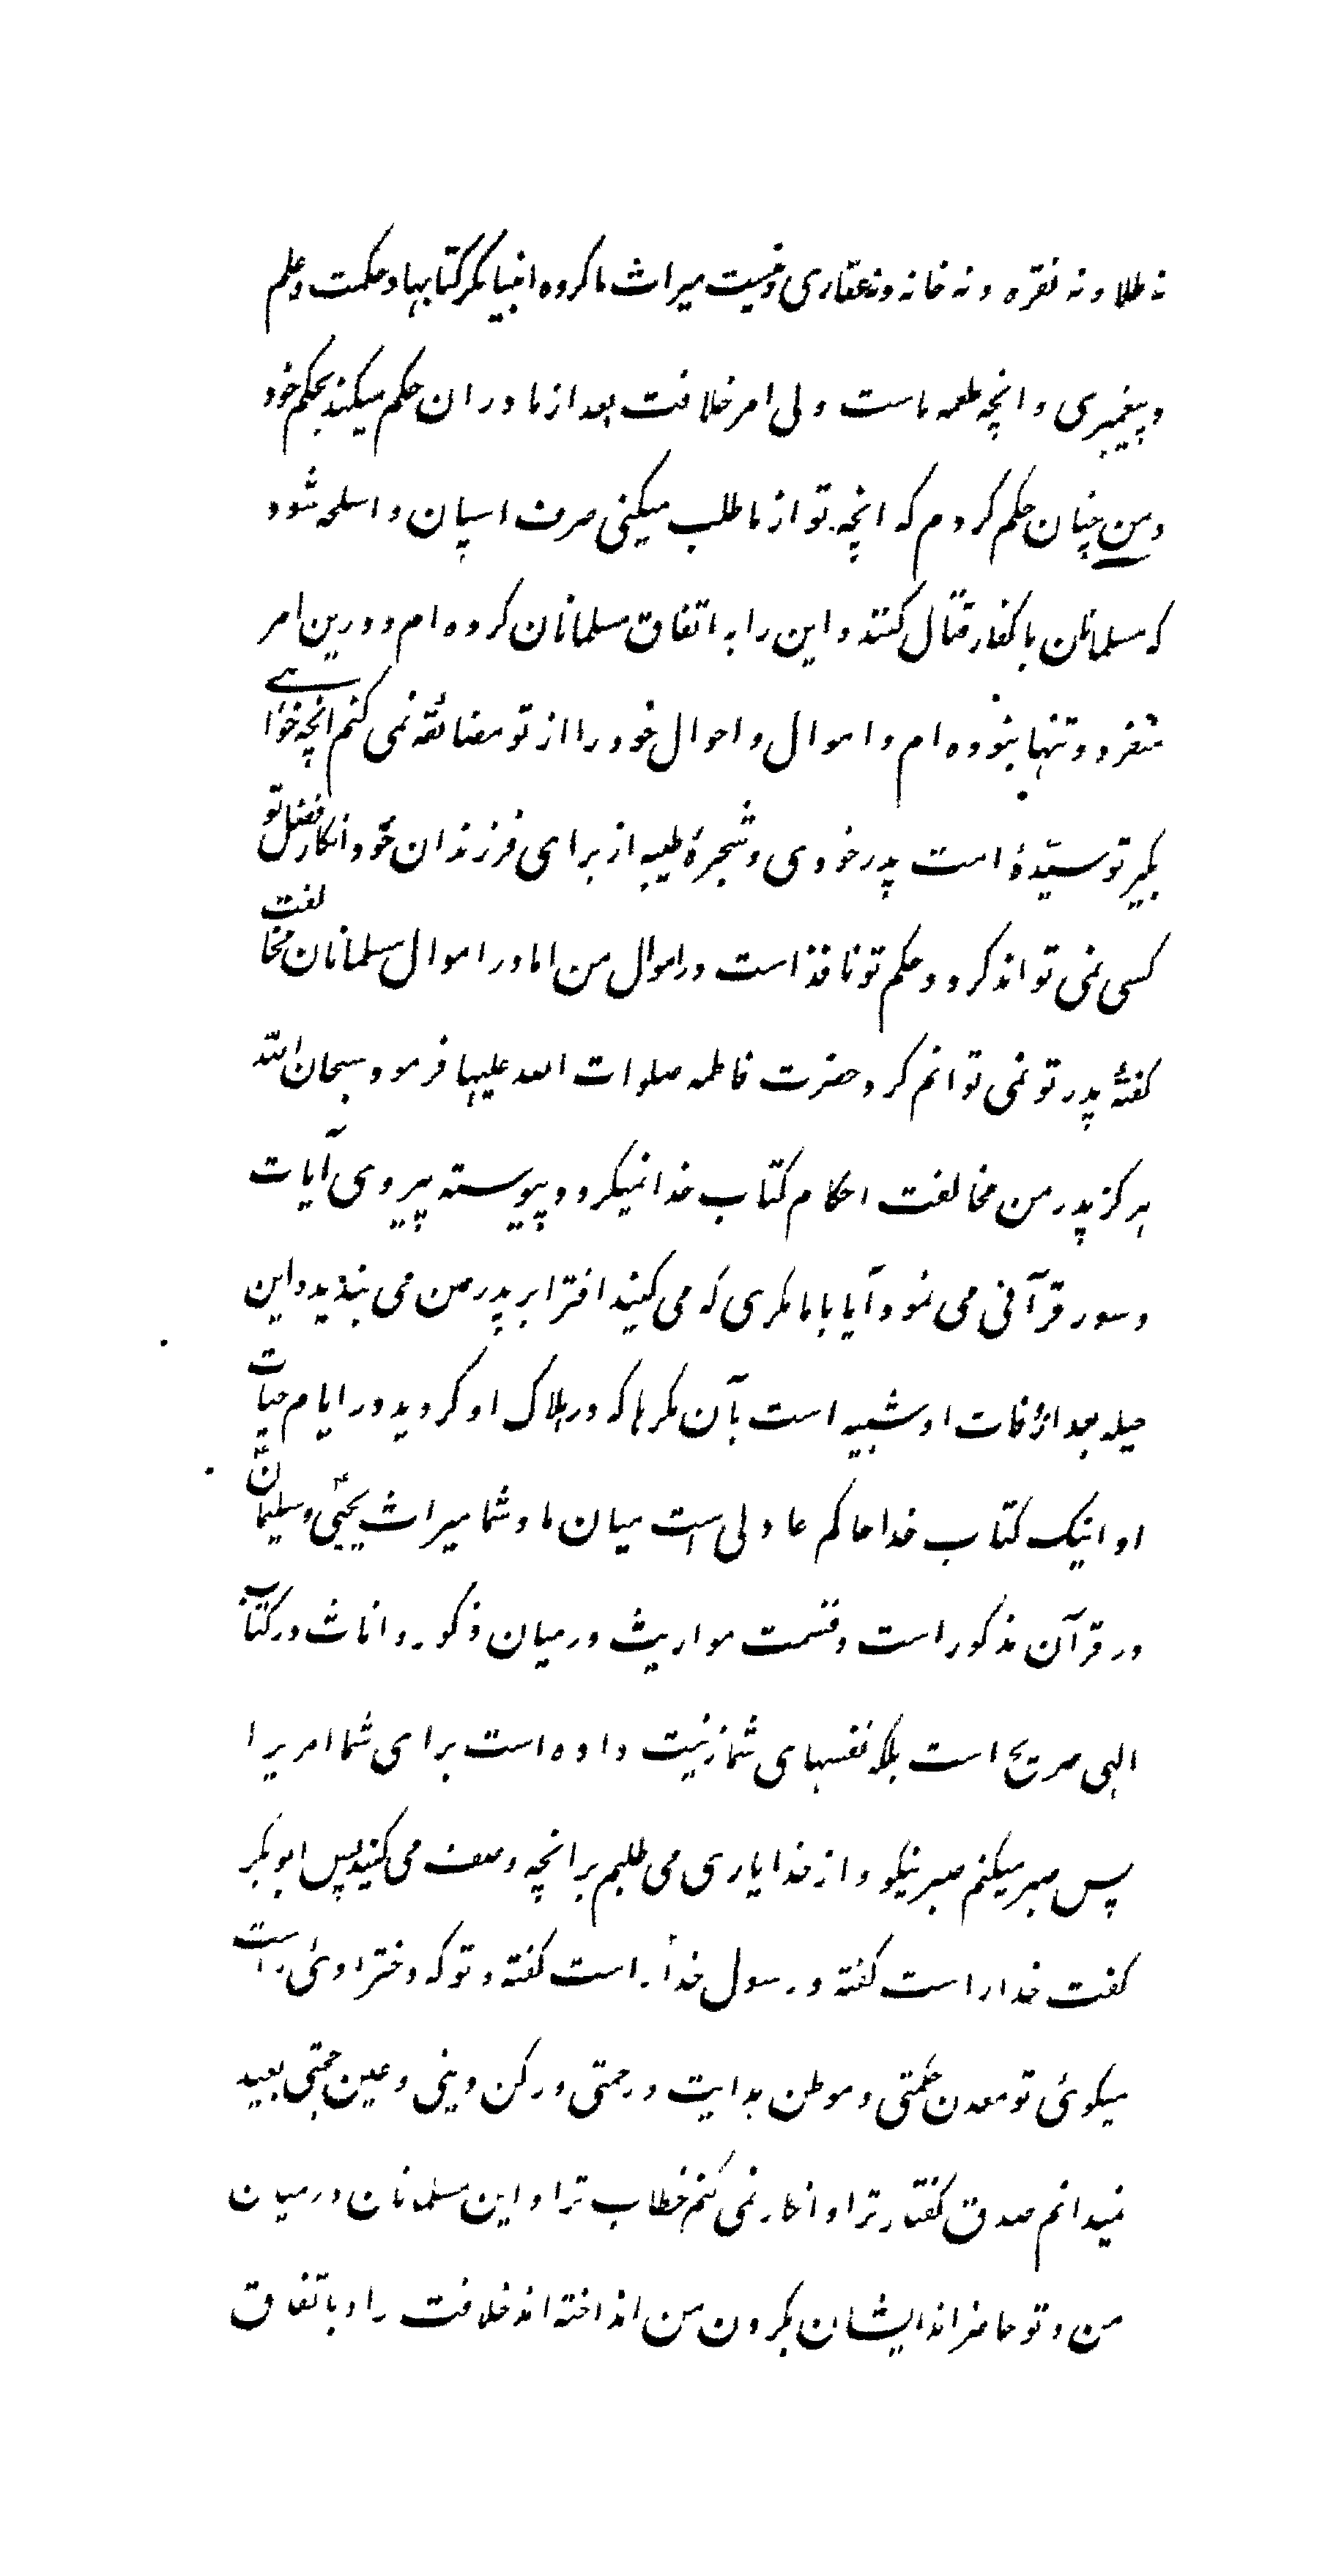 نه طلا و نه نقره و نه خانه و نه عقاری و نیست میراث ما گروه انبیا مگر کتابها و حکمت و علم
و پیغمبری و انچه طعمه ماست ولی امر خلافت بعد از ما در ان حکم میکند بحکم خود
و من چنان حکم کردم که انچه تو از ما طلب میکنی صرف اسپان و اسلحه شود
که مسلمانان با کفار قتال کنند و این را به اتفاق مسلمانان کرده ام و درین امر
متفرد و تنها نبوده ام و اموال و احوال خود را از تو مضائقه نمی کنم انچه خواهے
بگیر تو سیّدهٔ امت پدر خودی و شجرهٔ طیبه از برای فرزندان خود و انکار فضل تو
کسی نمی تواند کرد و حکم تو نافذ است در اموال من اما در اموال مسلمانان مخالفت
گفتهٔ پدر تو نمی توانم کرد حضرت فاطمه صلوات الله علیها فرمود سبحان الله
هرگز پدر من مخالفت احکام کتاب خدا نمیکرد و پیوسته پیروی آیات
و سور قرآنی می نمود آیا با ما مکری که می کنید افترا بر پدر من می بندید و این
حیله بعد از وفات او شبیه است بآن مکرها که در هلاک او کردید در ایام حیات
او اینک کتاب خدا حاکم عادلی است میان ما و شما میراث یحییٰ و سلیمان
در قرآن مذکور است و قسمت مواریث در میان ذکور و اناث در کتاب
الهی صریح است بلکه نفسهای شما زینت داده است برای شما امریرا
پس صبر میکنم صبر نیکو و از خدا یاری می طلبم بر انچه وصف می کنید پس ابوبکر
گفت خدا راست گفته و رسول خدا راست گفته و تو که دختر اوئی راست
میگوئی تو معدن حکمتی و موطن هدایت و رحمتی و رکن دینی و عین حجتی بعید
نمیدانم صدق گفتار ترا و انکار نمی کنم خطاب ترا و این مسلمانان در میان
من و تو حاضراند ایشان بگردن من انداخته اند خلافت را و باتفاق